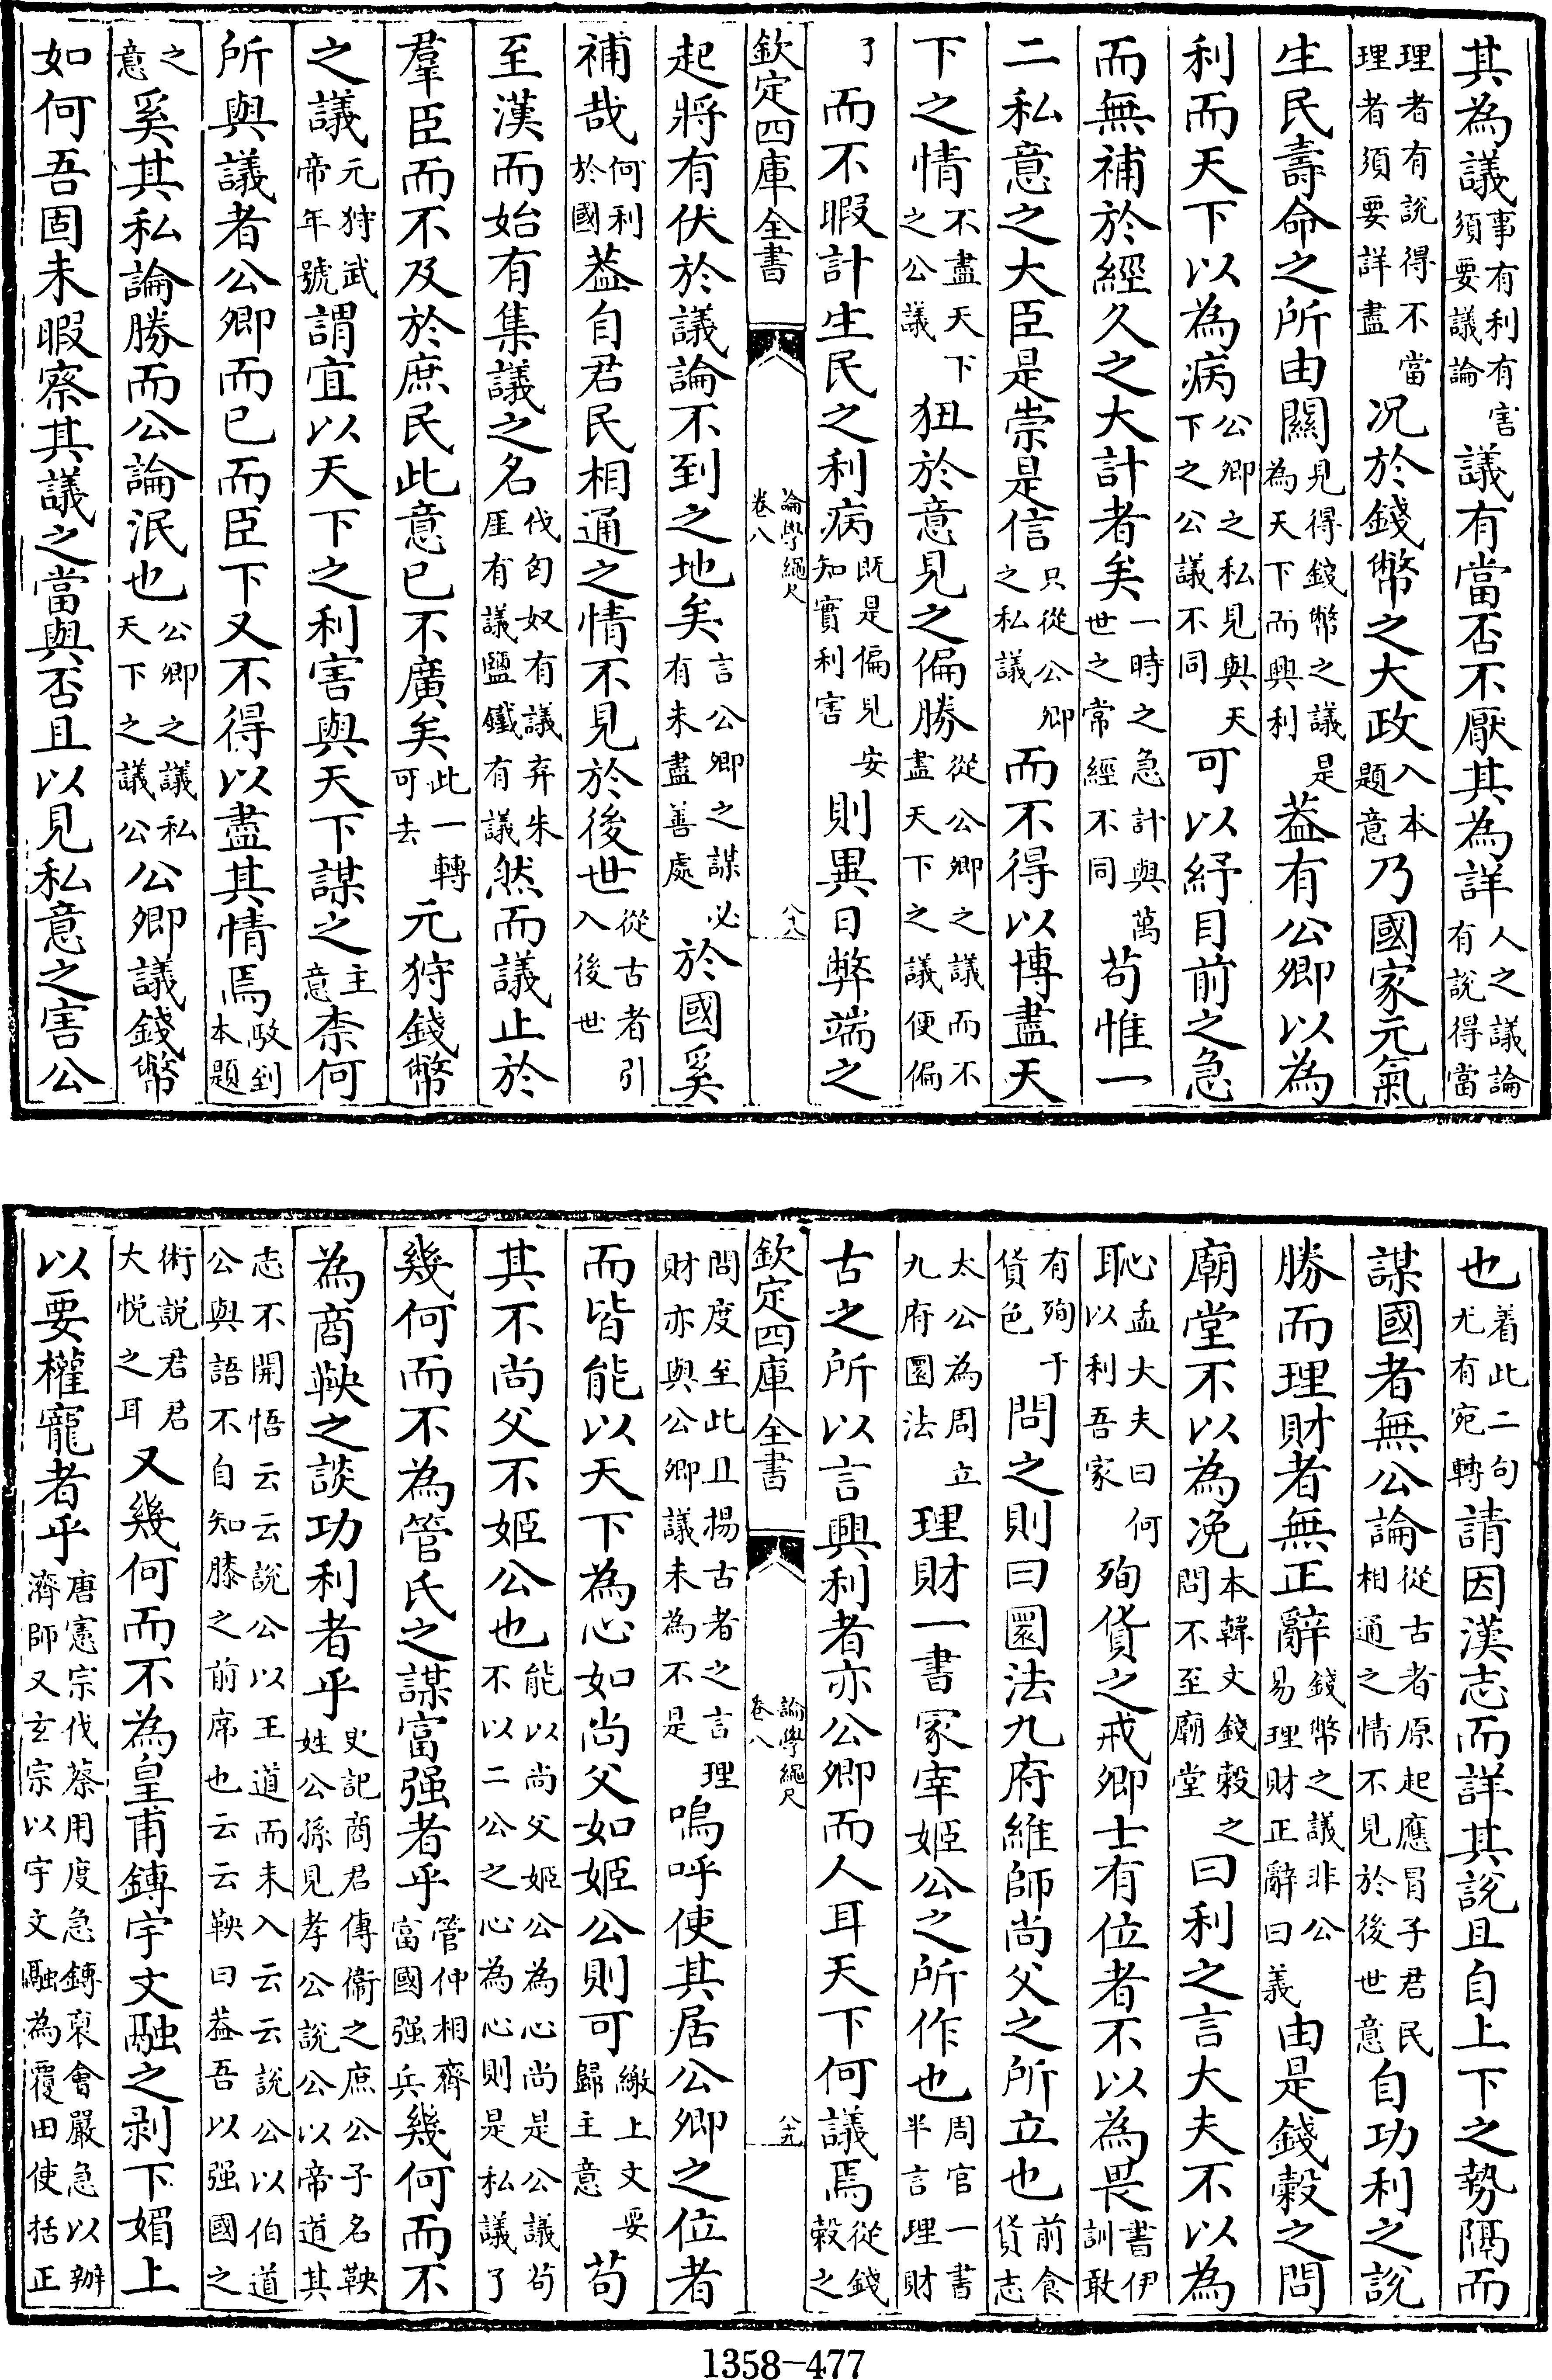 其為議事有利有害須要議論議有當否不厭其為詳人之議論有說得當
理者有說得不當理者須要詳盡况於錢幣之大政入本題意乃國家元氣
生民壽命之所由關見得錢幣之議是為天下而興利葢有公卿以為
利而天下以為病公卿之私見與天下之公議不同可以紓目前之急
而無補於經久之大計者矣一時之急計與萬世之常經不同苟惟一
二私意之大臣是崇是信只從公卿之私議而不得以博盡天
下之情不盡天下之公議狃於意見之偏勝從公卿之議而不盡天下之議便偏
了而不暇計生民之利病既是偏見安知實利害則異日弊端之
欽定四庫全書 論學繩尺 卷八 八十八
起將有伏於議論不到之地矣言公卿之謀必有未盡善處於國奚
補哉何利於國葢自君民相通之情不見於後世從古者引入後世
至漢而始有集議之名伐匈奴有議弃朱厓有議鹽鐵有議然而議止於
羣臣而不及於庶民此意已不廣矣此一轉可去元狩錢幣
之議元狩武帝年號謂宜以天下之利害與天下謀之主意柰何
所與議者公卿而已而臣下又不得以盡其情焉駁到本題
之意奚其私論勝而公論泯也公卿之議私天下之議公公卿議錢幣
如何吾固未暇察其議之當與否且以見私意之害公
也着此二句尤有宛轉請因漢志而詳其說且自上下之勢隔而
謀國者無公論從古者原起應冒子君民相通之情不見於後世意自功利之說
勝而理財者無正辭錢幣之議非公易理財正辭曰義由是錢穀之問
廟堂不以為凂本韓文錢穀之問不至廟堂曰利之言大夫不以為
恥孟大夫曰何以利吾家殉貨之戒卿士有位者不以為畏書伊訓敢
有殉于貨色問之則曰圜法九府維師尚父之所立也前食貨志
太公為周立九府圜法理財一書冢宰姬公之所作也周官一書半言理財
古之所以言興利者亦公卿而人耳天下何議焉從錢穀之
欽定四庫全書 論學繩尺 卷八 八十九
問度至此且揚古者之言理財亦與公卿議未為不是嗚呼使其居公卿之位者
而皆能以天下為心如尚父如姬公則可繳上文要歸主意苟
其不尚父不姬公也能以尚父姬公為心尚是公議苟不以二公之心為心則是私議了
幾何而不為管氏之謀富强者乎管仲相齊富國强兵幾何而不
為商鞅之談功利者乎史記商君傳衞之庶公子名鞅姓公孫見孝公說公以帝道其
志不開悟云云說公以王道而未入云云說公以伯道公與語不自知膝之前席也云云鞅曰葢吾以强國之
術說君君大悅之耳又幾何而不為皇甫鏄宇文融之剥下媚上
以要權寵者乎唐憲宗伐蔡用度急鏄裒會嚴急以辦濟師又玄宗以宇文融為覆田使括正
1358-477